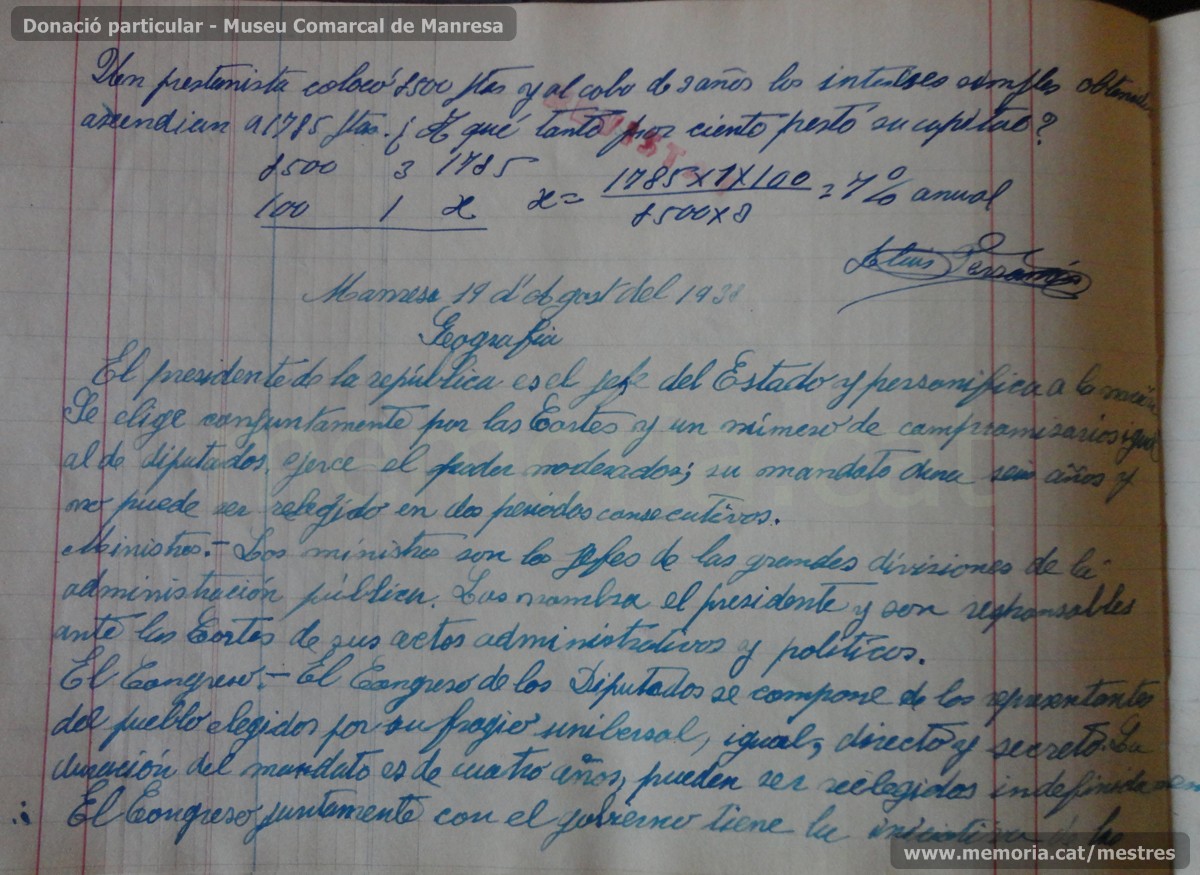 Donació particular - Museu Comarcal de Manresa
Un prestamista colocó 8500 ptas y al cabo de 3 años los intereses simples obtenidos
ascendian a 1785 ptas. ¿A qué tanto por ciento pestó su capital?
8500 3 1785
100 1 x x= 1785X1X100 = 7% anual
8500X3
Lluis
Manresa 19 d'Agost del 1938
Geografia
El presidente de la república es el jefe del Estado y personifica a la nación
Se elige conjuntamente por las Cortes y un número de compromisarios igual
al de diputados, ejerce el poder moderador; su mandato dura seis años y
no puede ser relegido en dos periodos consecutivos.
Ministros.- Los ministros son los jefes de las grandes divisiones de la
administración pública. Los nombra el presidente y son responsables
ante las Cortes de sus actos administrativos y políticos.
El Congreso.- El Congreso de los Diputados se compone de los representantes
del pueblo elegidos por sufragio unibersal, igual, directo y secreto. La
duración del mandato es de cuatro años, pueden ser relegidos indefinidamen
El Congreso juntamente con el gobierno tiene la iniciativa de las
memoria.cat
www.memoria.cat/mestres